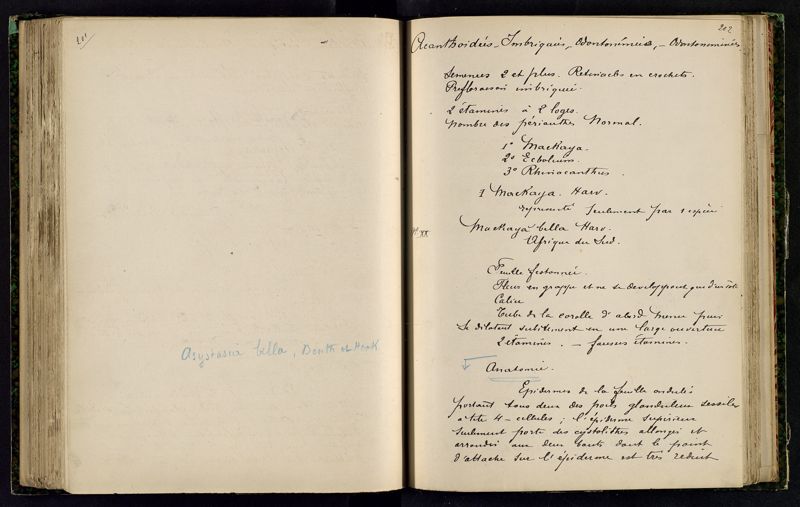 201
Asystasia bella, Benth et Hook
202
Acanthoidées - Imbriquées, - Odontonémées, - Odontoneminées
Semences 2 et plus. Retinacles en crochets.
Prefloraison imbriquée.
2 étamines à 2 loges.
Nombre des périanthes Normal.
1° Mackaya.
2° Ecbolium.
3° Rhinacanthus
1 Mackaya. Harv.
représenté seulement par 1 espèce
Mackaya bella Harv.
Afrique du Sud.
XX
Feuille festonnée.
Fleurs en grappe et ne se developpant que d'un côté
Calice
Tube de la corolle d'abord mince puis
se dilatant subitement en une large ouverture
2 étamines. - fausses étamines.
Anatomie.
Epidermes de la feuille ondulés
portant tous deux des poils glanduleux sessiles
à tête 4-cellules ; l'épiderme supérieur
seulement porte des cystolithes allongés et
arrondis aux deux bouts dont le point
d'attache sur l'épiderme est très réduit